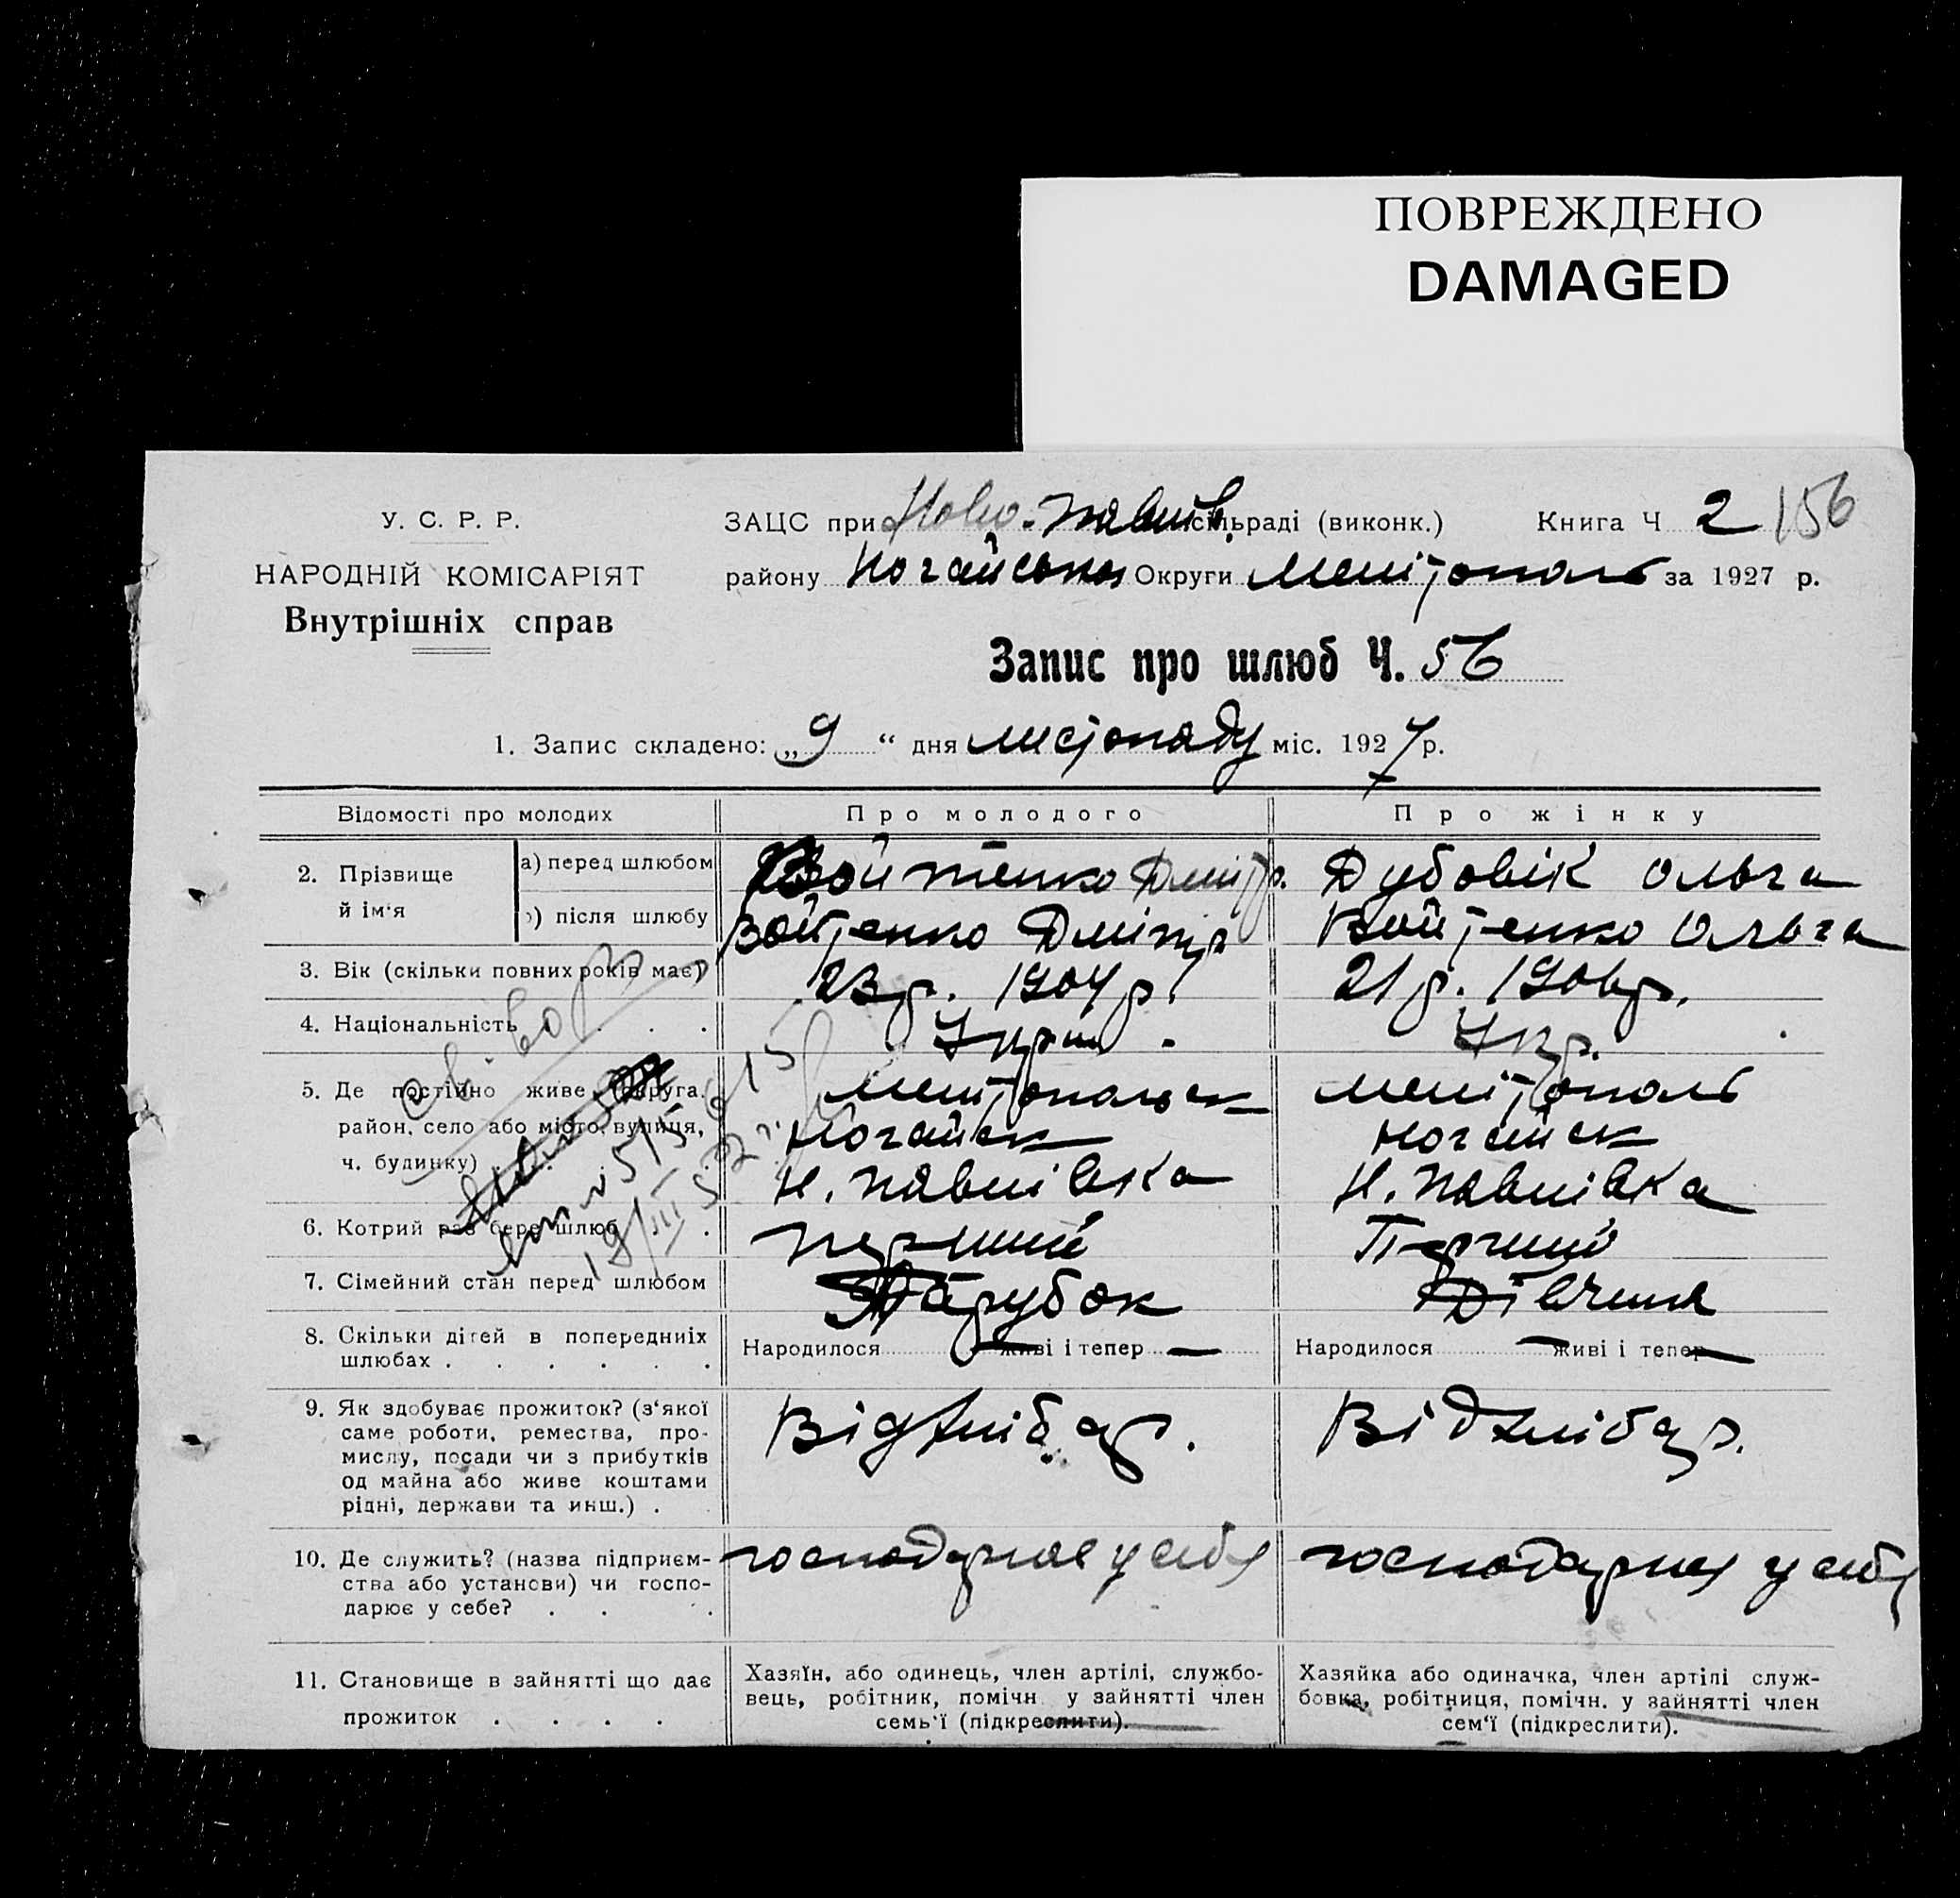 ПОВРЕЖДЕНО
DAMAGED
У. С. Р. Р.
НАРОДНІЙ КОМІСАРІЯТ
Внутрішніх справ
ЗАЦС при Ново-Павлів. сільраді (виконк.) Книга Ч 2 156
району Ногайська Округи Мелітополь за 1927 р.
Запис про шлюб Ч. 56
1. Запис складено: „9“ дня листопаду міс. 1927 р.
Відомості про молодих Про молодого Про жінку
2. Прізвище й ім'я
а) перед шлюбом Войтенко Дмітр. Дубовік Ольга
б) після шлюбу Войтенко Дмітр Войтенко Ольга
3. Вік (скільки повних років має) 23 р. 1904 р. 21 р. 1906 р.
4. Національність . . . . Укр. Укр.
5. Де постійно живе (округа, район, село або місто, вулиця, ч. будинку)
Мелітопольск Мелітополь
Ногайск Ногайск
Н. Павлівка Н. Павлівка
6. Котрий раз бере шлюб . . Перший Перший
7. Сімейний стан перед шлюбом Парубок Дівчина
8. Скільки дітей в попередниіх шлюбах . . . . . .
Народилося — живі і тепер — Народилося — живі і тепер —
9. Як здобуває прожиток? (з'якої
саме роботи, ремества, про-
мислу, посади чи з прибутків
од майна або живе коштами
рідні, держави та инш.) .
Від хлібар. Від хлібар.
10. Де служить? (назва підприєм-
ства або установи) чи госпо-
дарює у себе? . . .
господарює у себе господарює у себе
11. Становище в зайнятті що дає
прожиток . . . .
Хазяїн, або одинець, член артілі, службо-
вець, робітник, помічн. у зайнятті член
семь'ї (підкреслити).
Хазяйка або одиначка, член артілі служ-
бовка, робітниця, помічн. у зайнятті член
сем'ї (підкреслити).